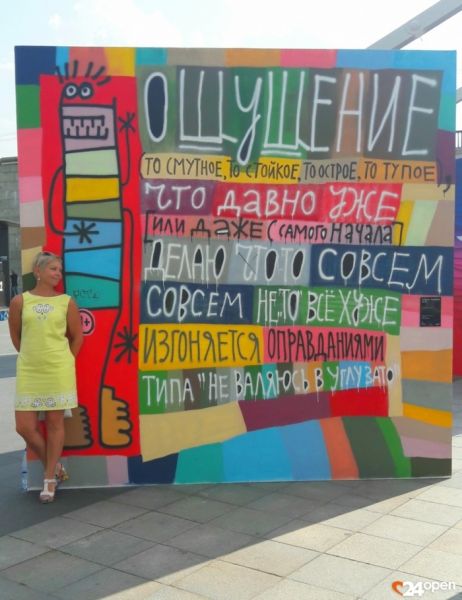 ОЩУЩЕНИЕ
(ТО СМУТНОЕ, ТО СТОЙКОЕ, ТО ОСТРОЕ, ТО ТУПОЕ),
ЧТО ДАВНО УЖЕ
(ИЛИ ДАЖЕ (САМОГО НАЧАЛА)
ДЕЛАЮ ЧТО ТО СОВСЕМ
СОВСЕМ НЕ ТО ВСЁ ХУЖЕ
ИЗГОНЯЕТСЯ ОПРАВДАНИЯМИ
ТИПА "НЕ ВАЛЯЮСЬ В УГЛУ ЗАТО"
24open